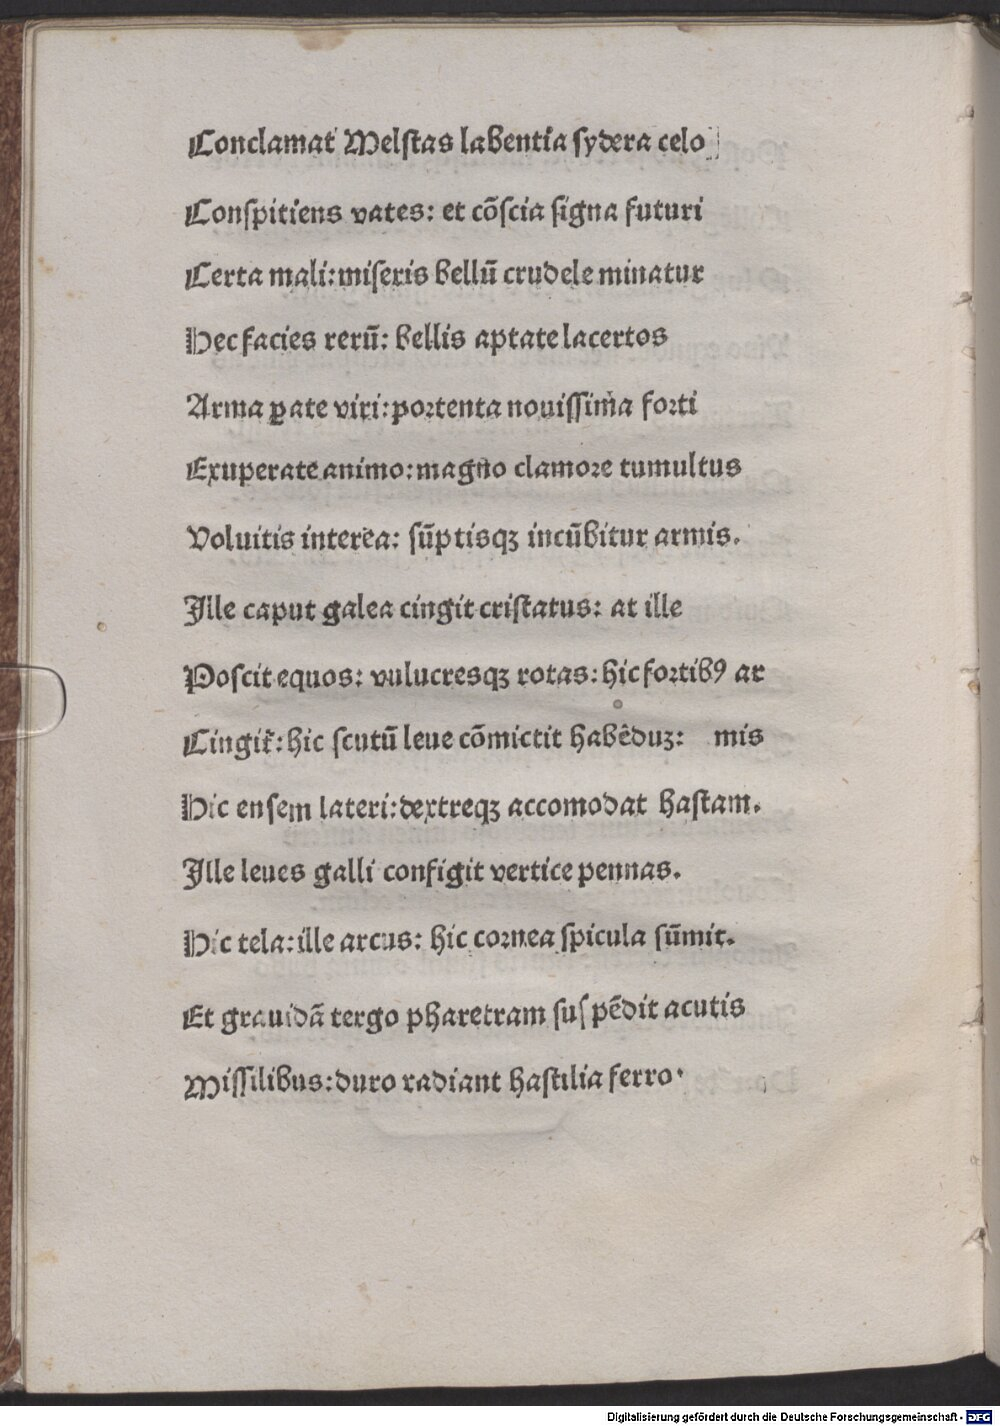 Conclamat Melſtas labentia ſydera celo
Conſpitiens vates: et cõſcia ſigna futuri
Certa mali: miſeris bellũ crudele minatur
Hec facies rerũ: bellis aptate lacertos
Arma ꝑate viri: poꝛtenta nouiſſima foꝛti
Exuperate animo: magno clamoꝛe tumultus
Voluitis interea: ſũptisqꝫ incũbitur armis.
Ille caput galea cingit criſtatus: at ille
Poſcit equos: vulucresqꝫ rotas: hic foꝛtibꝰ ar
Cingit̃: hic ſcutũ leue cõmictit habẽduꝫ: mis
Hic enſem lateri: dextreqꝫ accomodat haſtam.
Ille leues galli configit vertice pennas.
Hic tela: ille arcus: hic coꝛnea ſpicula ſũmit.
Et grauidã tergo pharetram ſuſpẽdit acutis
Miſſilibus: duro radiant haſtilia ferro.
Digitalisierung gefördert durch die Deutsche Forschungsgemeinschaft - DFG